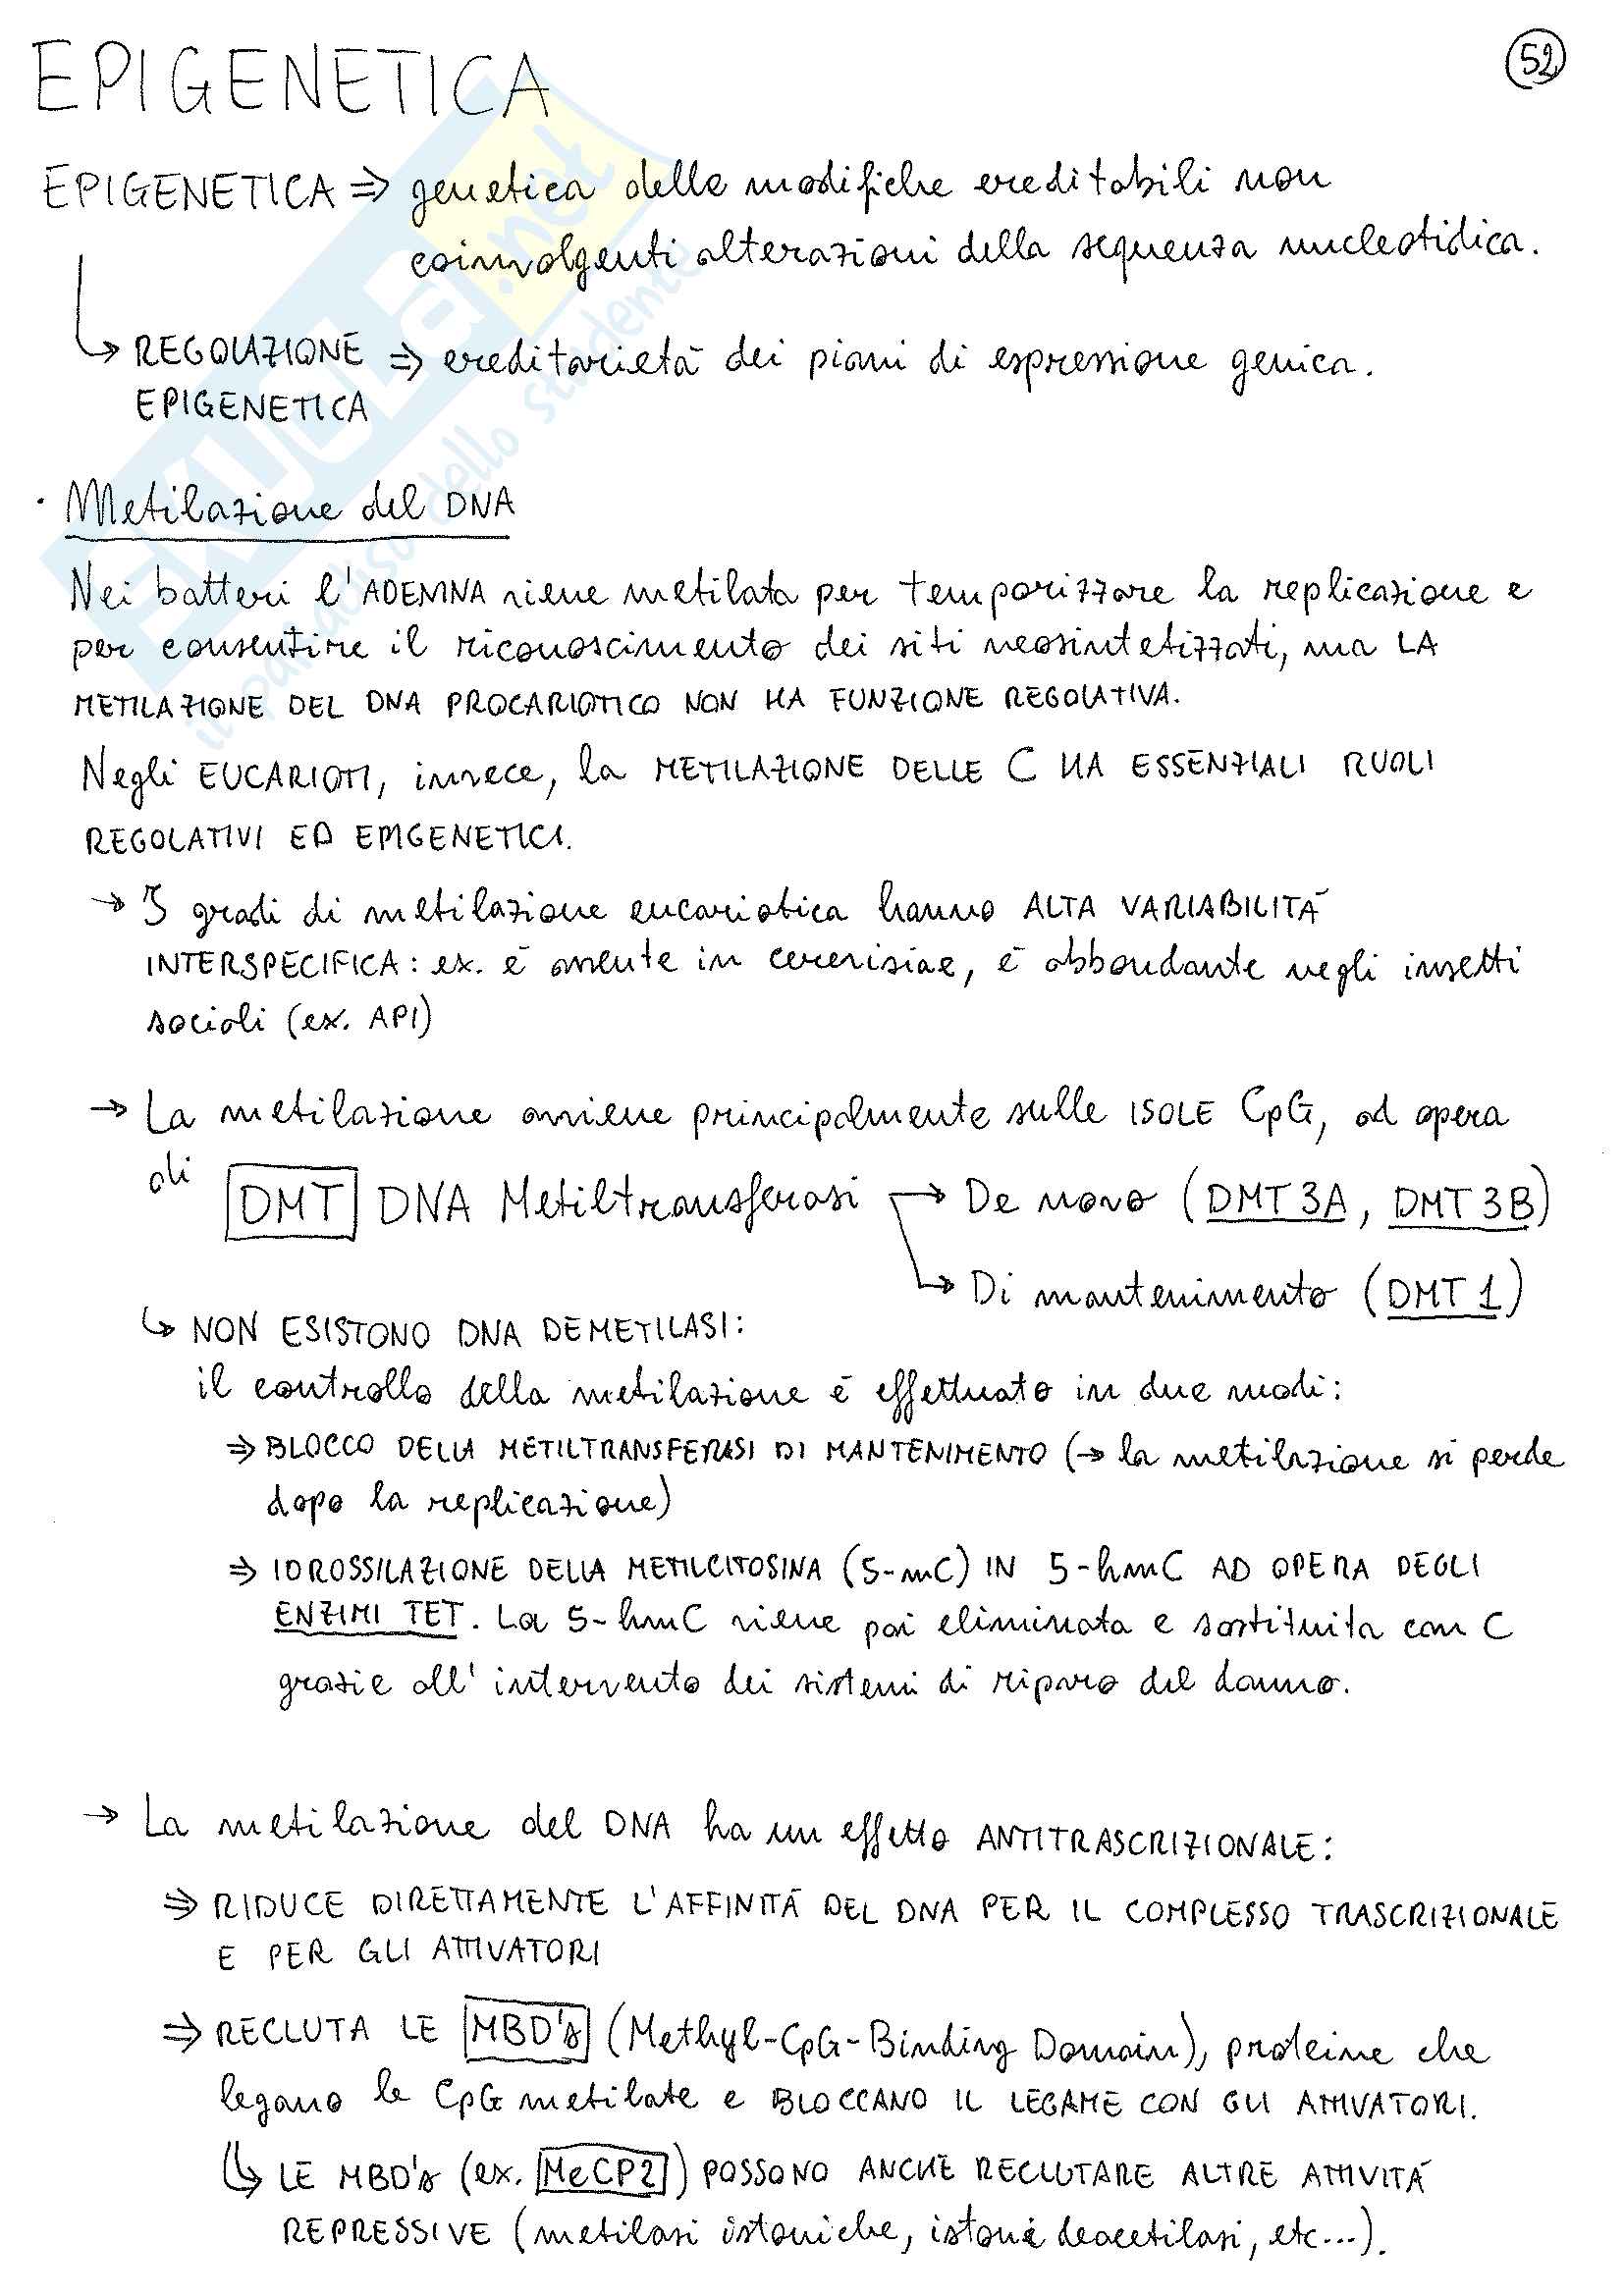 EPIGENETICA
52
EPIGENETICA ⇒ genetica delle modifiche ereditabili non
coinvolgenti alterazioni della sequenza nucleotidica.
↳ REGOLAZIONE ⇒ ereditarietà dei piani di espressione genica.
EPIGENETICA
· Metilazione del DNA
Nei batteri l'ADENINA viene metilata per temporizzare la replicazione e
per consentire il riconoscimento dei siti neosintetizzati, ma LA
METILAZIONE DEL DNA PROCARIOTICO NON HA FUNZIONE REGOLATIVA.
Negli EUCARIOTI, invece, la METILAZIONE DELLE C HA ESSENZIALI RUOLI
REGOLATIVI ED EPIGENETICI.
→ I gradi di metilazione eucariotica hanno ALTA VARIABILITÀ
INTERSPECIFICA: ex. è assente in cerevisiae, è abbondante negli insetti
sociali (ex. API)
→ La metilazione avviene principalmente sulle ISOLE CpG, ad opera
di DMT DNA Metiltransferasi → De novo (DMT 3A, DMT 3B)
↳ Di mantenimento (DMT 1)
↳ NON ESISTONO DNA DEMETILASI:
il controllo della metilazione è effettuato in due modi:
⇒ BLOCCO DELLA METILTRANSFERASI DI MANTENIMENTO (→ la metilazione si perde
dopo la replicazione)
⇒ IDROSSILAZIONE DELLA METILCITOSINA (5-mC) IN 5-hmC AD OPERA DEGLI
ENZIMI TET. La 5-hmC viene poi eliminata e sostituita con C
grazie all'intervento dei sistemi di riparo del danno.
→ La metilazione del DNA ha un effetto ANTITRASCRIZIONALE:
⇒ RIDUCE DIRETTAMENTE L'AFFINITÀ DEL DNA PER IL COMPLESSO TRASCRIZIONALE
E PER GLI ATTIVATORI
⇒ RECLUTA LE MBD's (Methyl-CpG-Binding Domain), proteine che
legano le CpG metilate e BLOCCANO IL LEGAME CON GLI ATTIVATORI.
↳ LE MBD's (ex. MeCP2) POSSONO ANCHE RECLUTARE ALTRE ATTIVITÀ
REPRESSIVE (metilasi istoniche, istone deacetilasi, etc...).
SKUOLA.net
il paradiso dello studente